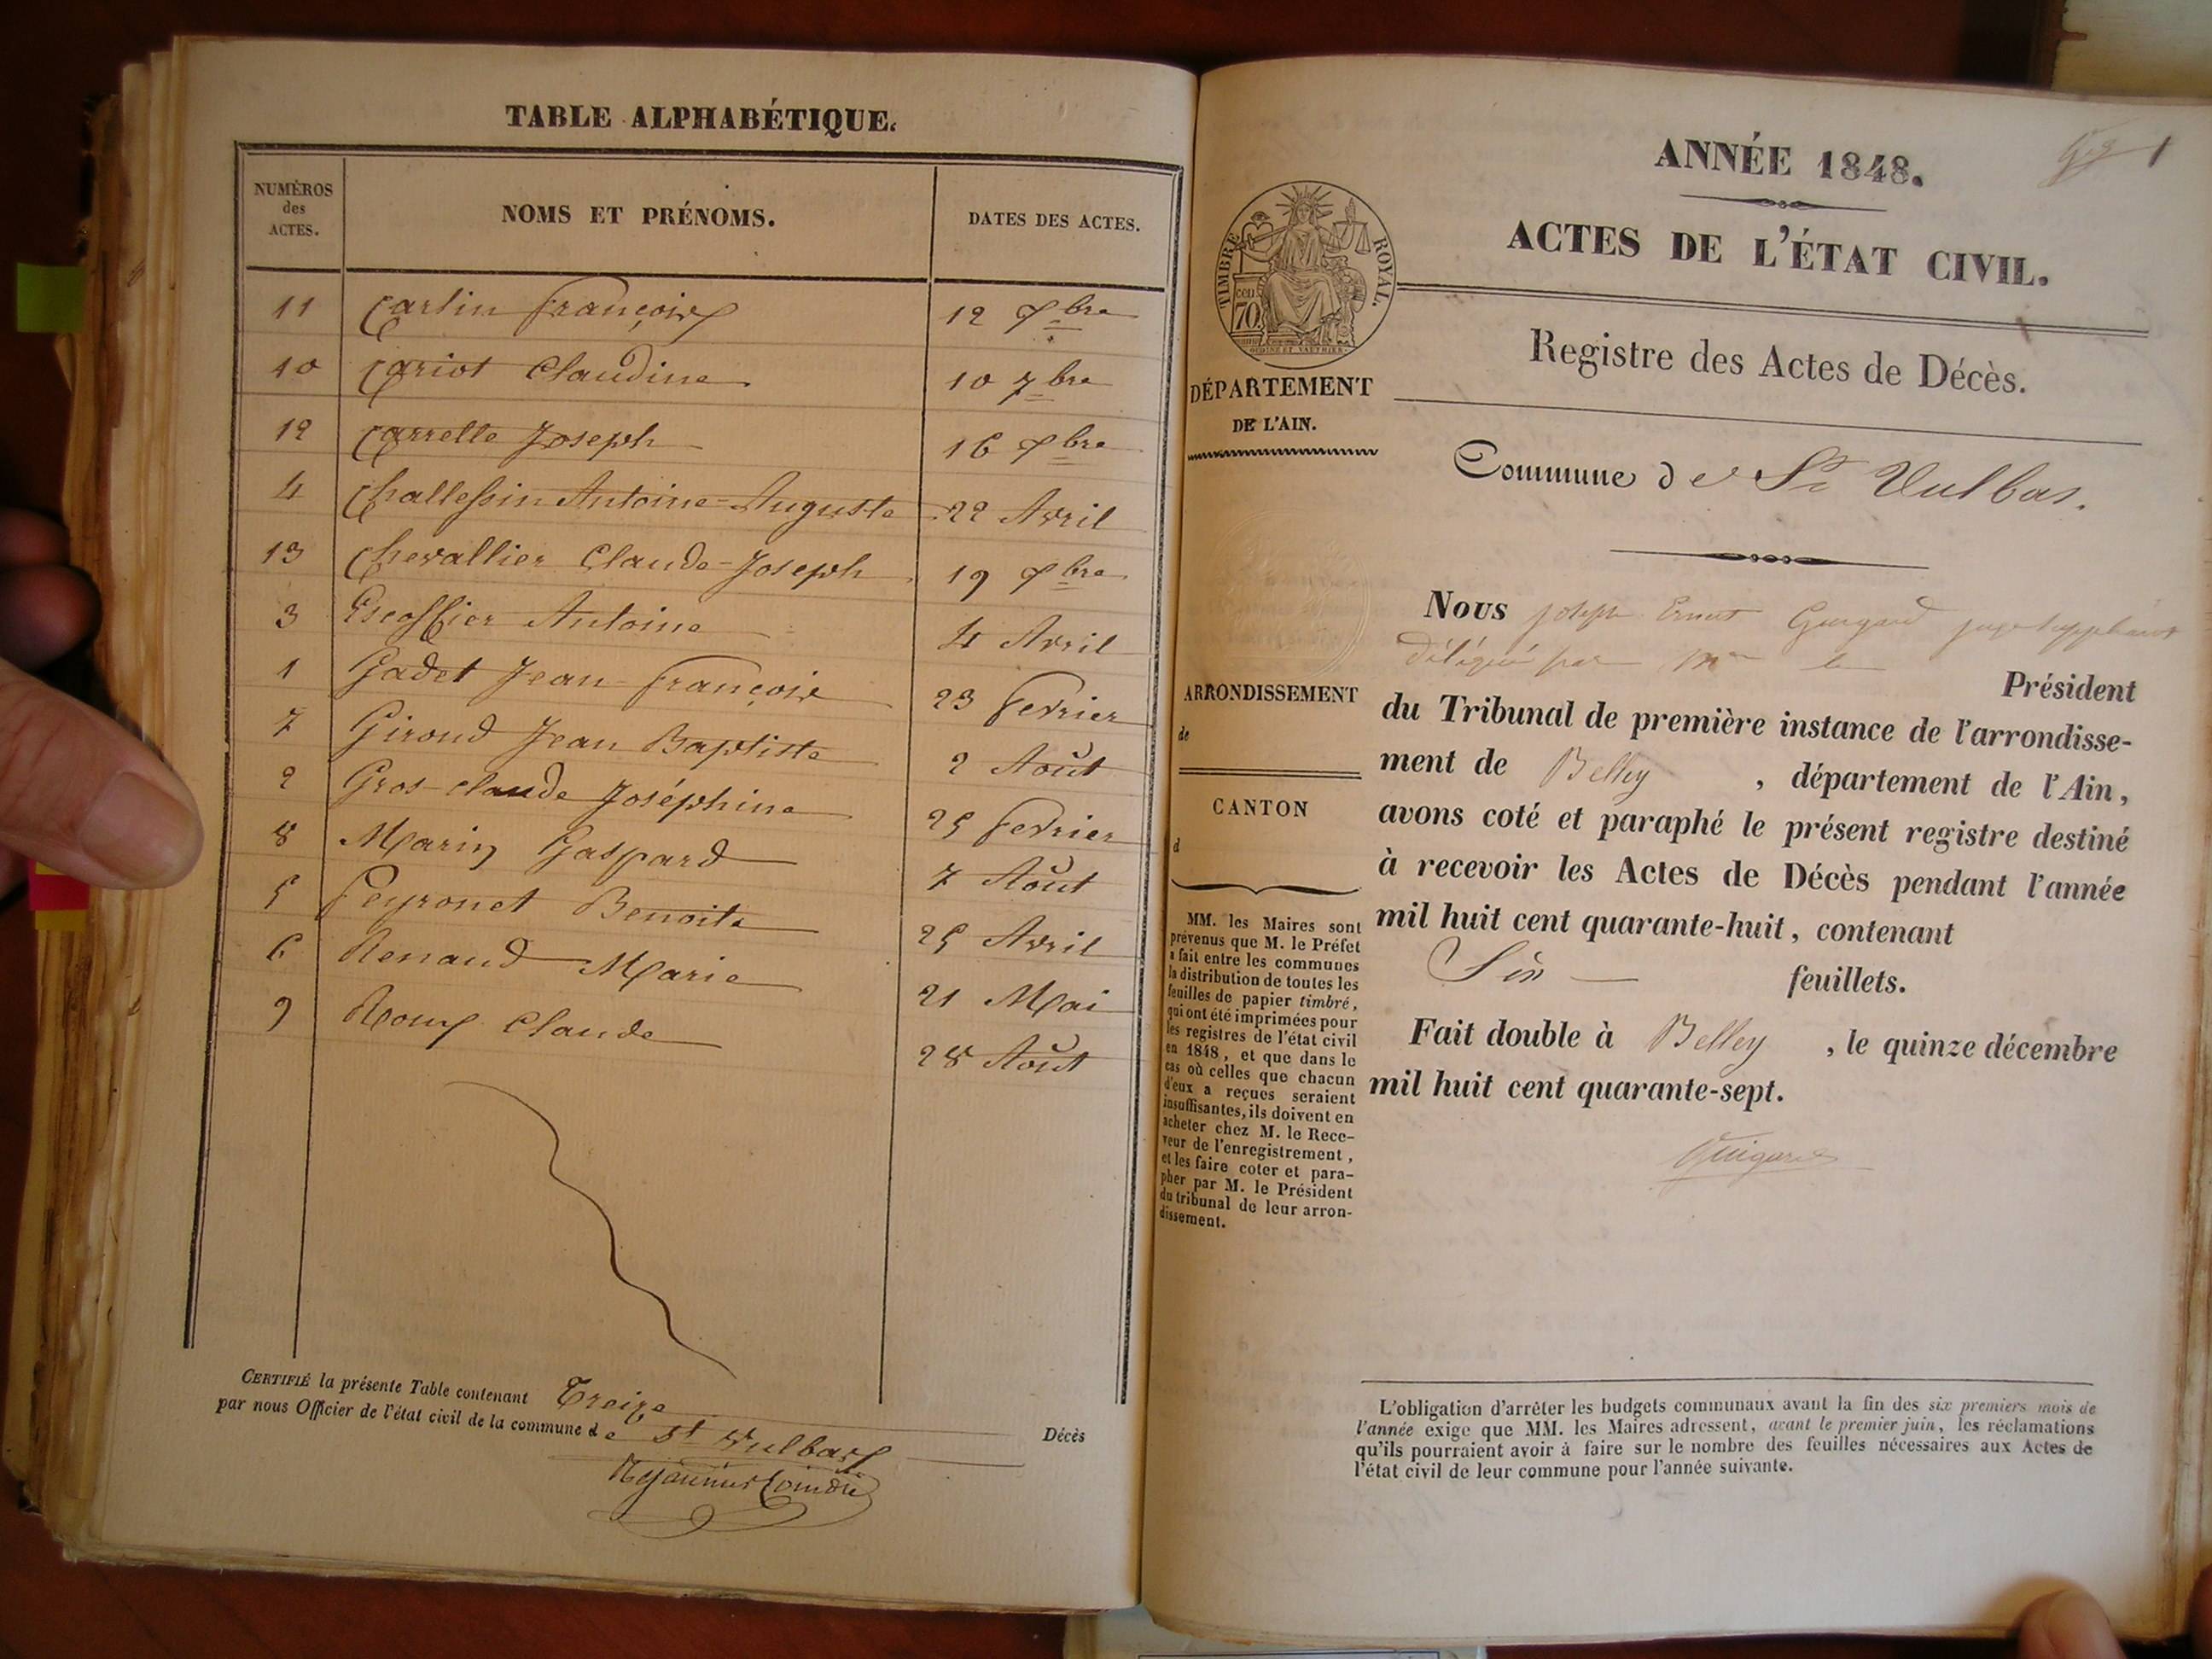 TABLE ALPHABÉTIQUE.
NUMÉROS des ACTES.
NOMS ET PRÉNOMS.
DATES DES ACTES.
11 Carlin françois 12 9bre
10 Cariot Claudine 10 7bre
12 Carrelle Joseph 16 9bre
4 Challessin Antoine-Auguste 22 Avril
13 Chevallier Claude-Joseph 19 9bre
3 Escoffier Antoine 4 Avril
1 Gadet Jean françois 23 fevrier
7 Giroud Jean Baptiste 2 Août
2 Gros-claude Joséphine 25 fevrier
8 Marin Gaspard 7 Août
5 Peyronet Benoite 25 Avril
6 Renaud Marie 21 Mai
9 Roux Claude 28 Août
CERTIFIÉ la présente Table contenant Treize Décès
par nous Officier de l'état civil de la commune de St Vulbas
1
ANNÉE 1848.
ACTES DE L'ÉTAT CIVIL.
TIMBRE ROYAL.
cen.
70
Registre des Actes de Décès.
DÉPARTEMENT
DE L'AIN.
Commune de St Vulbas.
Nous Joseph Ernest Guigard juge suppléant
délégué par Mr le
Président
du Tribunal de première instance de l'arrondisse-
ment de Belley, département de l'Ain,
avons coté et paraphé le présent registre destiné
à recevoir les Actes de Décès pendant l'année
mil huit cent quarante-huit, contenant
Six feuillets.
Fait double à Belley, le quinze décembre
mil huit cent quarante-sept.
Guigard
ARRONDISSEMENT
de
CANTON
d
MM. les Maires sont
prévenus que M. le Préfet
a fait entre les communes
la distribution de toutes les
feuilles de papier timbré,
qui ont été imprimées pour
les registres de l'état civil
en 1848, et que dans le
cas où celles que chacun
d'eux a reçues seraient
insuffisantes, ils doivent en
acheter chez M. le Rece-
veur de l'enregistrement,
et les faire coter et para-
pher par M. le Président
du tribunal de leur arron-
dissement.
L'obligation d'arrêter les budgets communaux avant la fin des six premiers mois de
l'année exige que MM. les Maires adressent, avant le premier juin, les réclamations
qu'ils pourraient avoir à faire sur le nombre des feuilles nécessaires aux Actes de
l'état civil de leur commune pour l'année suivante.